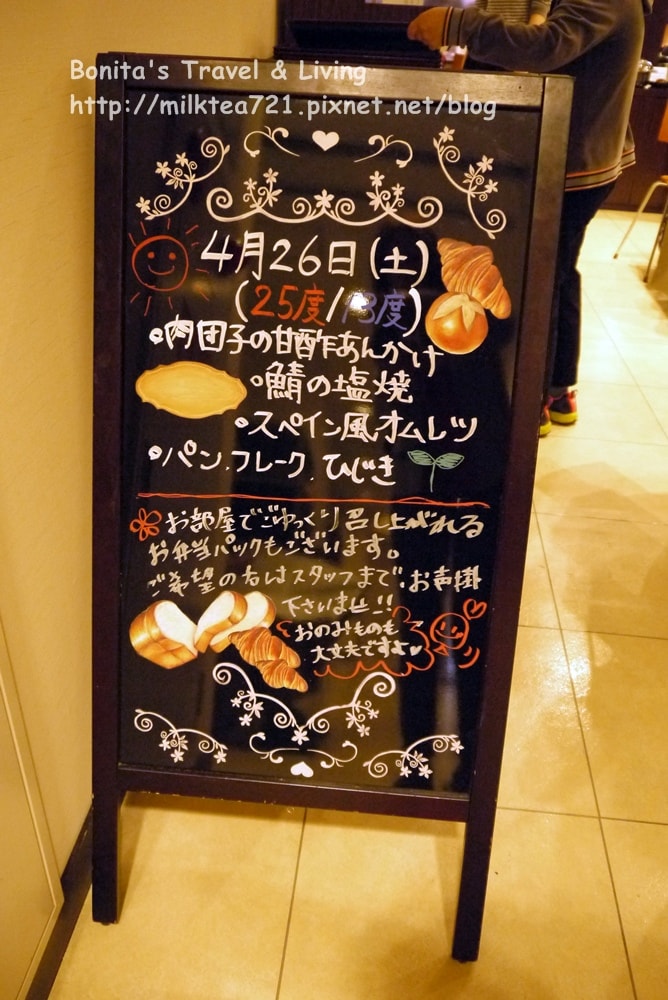 Bonita's Travel & Living
http://milktea721.pixnet.net/blog
4月26日(土)
(25度/13度)
•肉団子の甘酢あんかけ
•鯖の塩焼
•スペイン風オムレツ
•パン.フレーク.ひじき
お部屋でごゆっくり召し上がれる
お弁当パックもございます。
ご希望の方はスタッフまで、お声掛
下さいませ!!
おのみものも
大丈夫ですよ♥